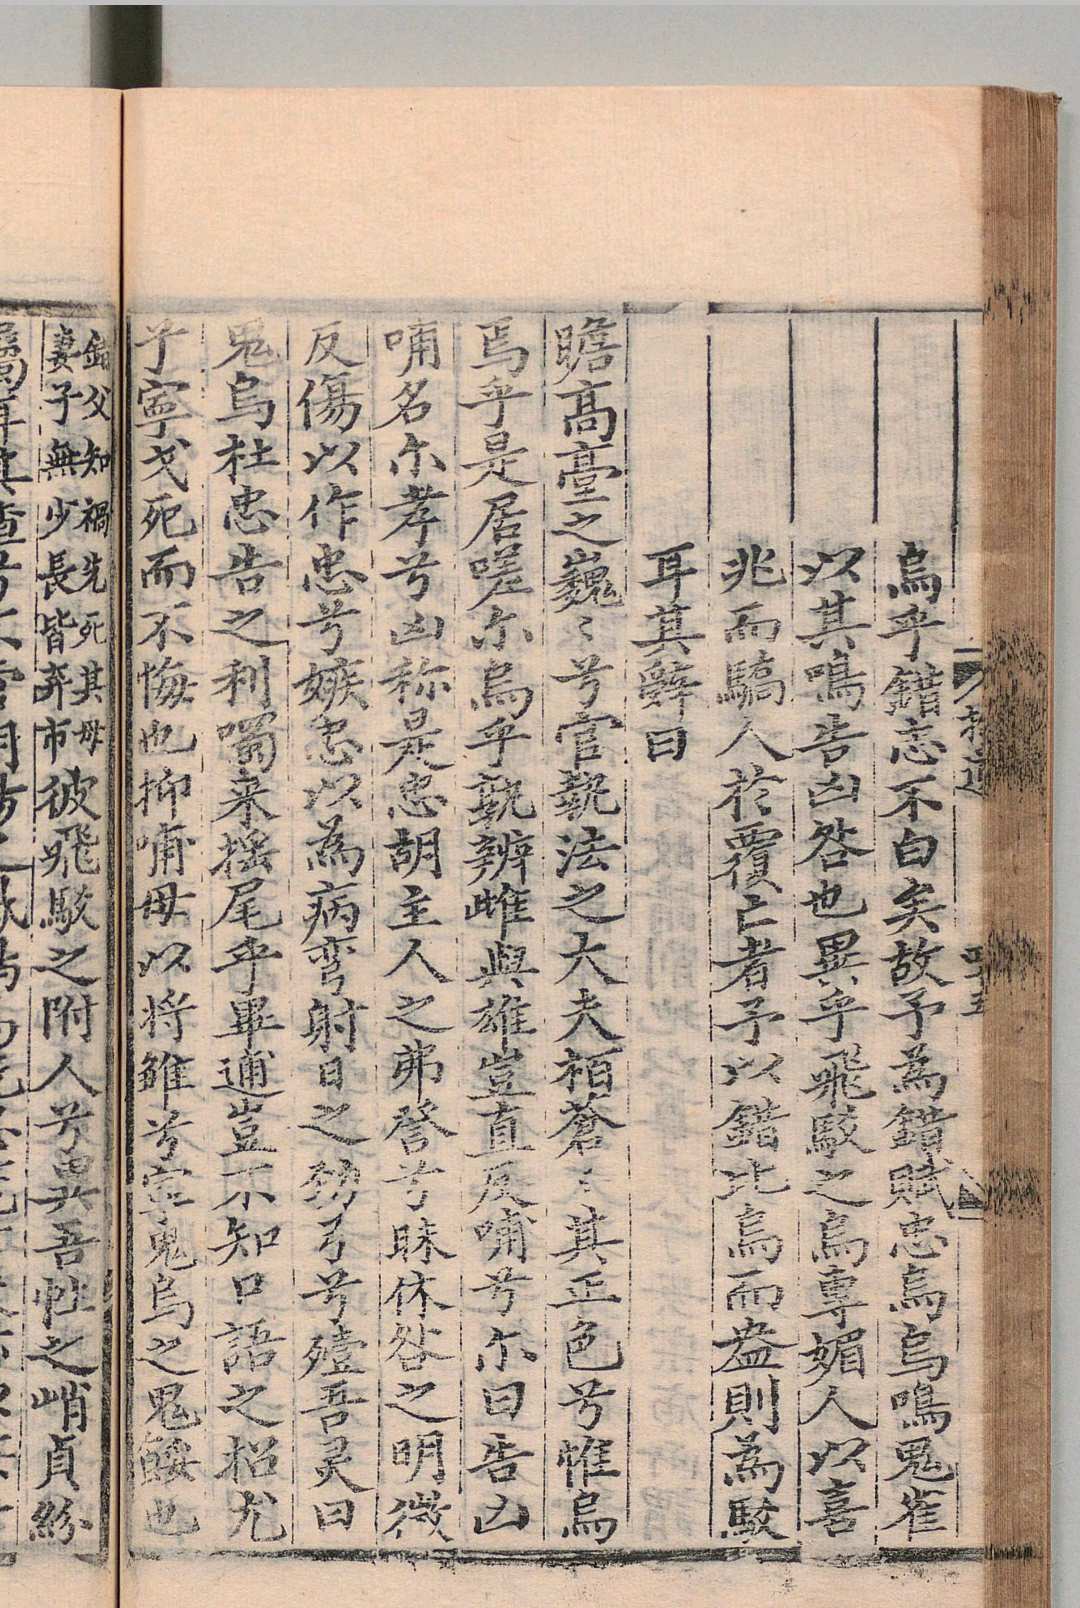 烏乎錯忠不白矣故予為錯賦忠烏烏鳴鬼雀
以其鳴告凶咎也異乎飛駁之烏專媚人以喜
兆而驕人於覆亡者予以錯比烏而盎則為駁
耳其辭曰
瞻高臺之巍〻兮官執法之大夫栢蒼〻其正色兮惟烏
焉乎是居嗟尓烏乎孰辨雌與雄豈直反哺兮尓曰告凶
哺名尓孝兮凶称是忠胡主人之弗詧兮昧休咎之明微
反傷以作忠兮嫉忠以為病弯射日之勁弓兮殪吾灵曰
鬼烏杜忠告之利噣来揺尾乎畢逋豈不知口語之招尤
予寧戈死而不悔也抑哺母以将雏兮寧鬼烏之鬼餒也
錯父知禍先死其母
妻子無少長皆弃市
彼飛駁之附人兮異吾性之峭貞紛